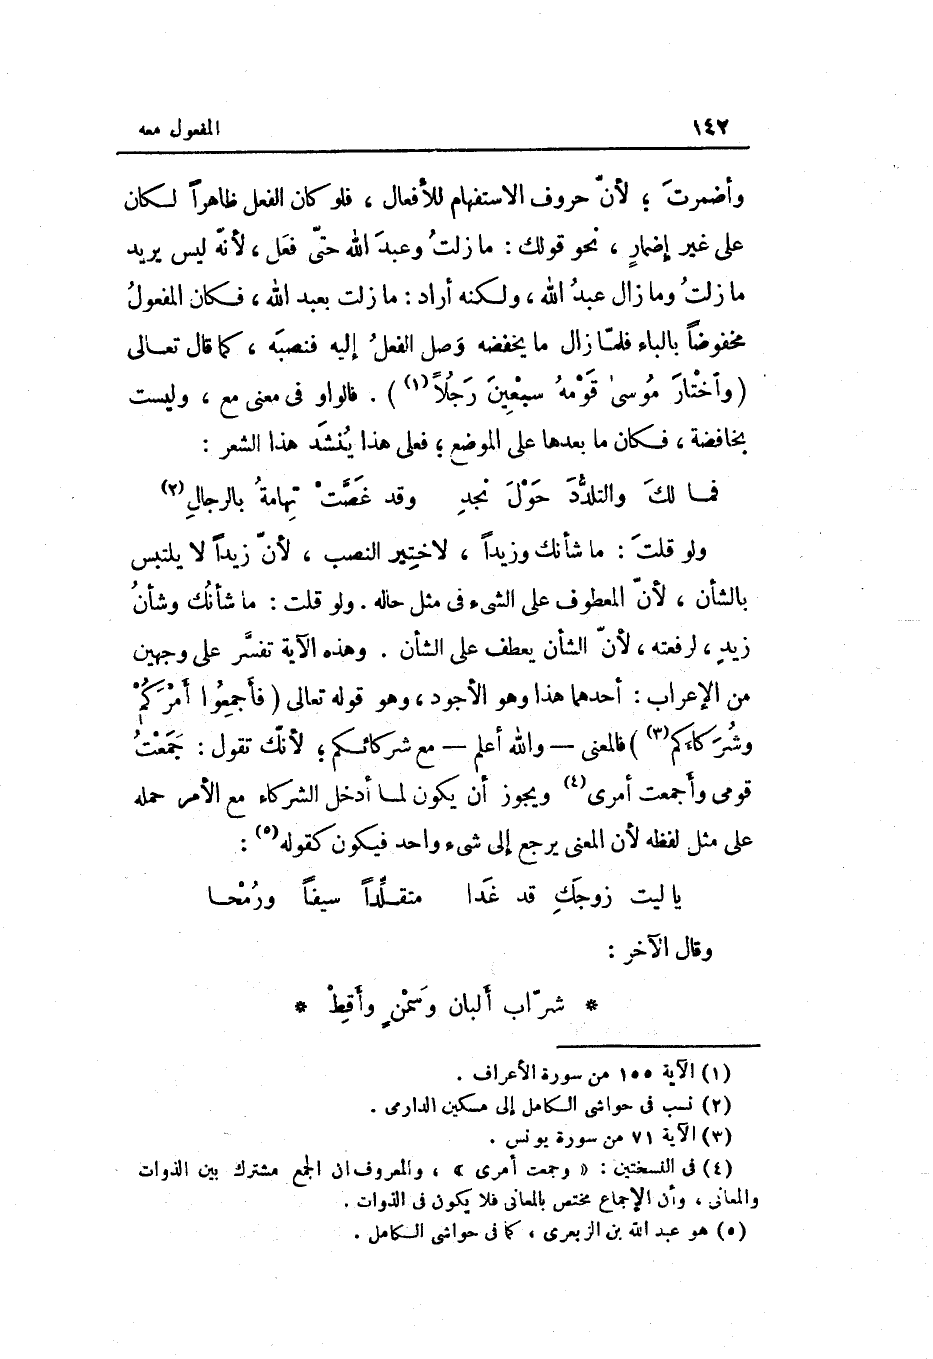 ١٤٢ المفعول معه
وأضمرتَ ؛ لأنّ حروف الاستفهام للأفعال ، فلو كان الفعل ظاهراً لكان
على غير إضمارٍ ، نحو قولك : ما زلتُ وعبدَ الله حتّى فعَل ، لأنهّ ليس يريد
ما زلتُ وما زال عبدُ الله ، ولكنه أراد : ما زلت بعبد الله ، فكان المفعولُ
مخفوضاً بالباء فلمّا زال ما يخفضه وَصل الفعلُ إليه فنصبَه ، كما قال تعالى
( وَاخْتارَ مُوسىٰ قَوْمهُ سبْعِينَ رَجُلاً (١) ) . فالواو فى معنى مع ، وليست
بخافضة ، فكان ما بعدها على الموضع ؛ فعلى هذا يُنشَد هذا الشعر :
فما لكَ والتلدُّدَ حَوْلَ نجدٍ وقد غَصَّتْ تِهامةُ بالرجالِ (٢)
ولو قلتَ : ما شأنك وزيداً ، لاختِير النصب ، لأنّ زيداً لا يلتبس
بالشأن ، لأنّ المعطوف على الشىء فى مثل حاله . ولو قلت : ما شأنُك وشأنُ
زيدٍ ، لرفعته ، لأنّ الشأن يعطف على الشأن . وهذه الآية تفسَّر على وجهين
من الإعراب : أحدهما هذا وهو الأجود ، وهو قوله تعالى ( فأجمِعُوا أمْرَكُمْ
وشُرَكاءَكم (٣) ) فالمعنى — والله أعلم — مع شركائكم ؛ لأنّك تقول : جَمَعْتُ
قومى وأجمعت أمرى (٤) ويجوز أن يكون لما أدخل الشركاء مع الأمر حمله
على مثل لفظه لأن المعنى يرجع إلى شىء واحد فيكون كقوله (٥) :
يا ليت زوجَكِ قد غَدَا متقلِّداً سيفاً ورُمْحا
وقال الآخر :
* شرّاب ألبان وَسمْنٍ وأَقِطْ *
(١) الآية ١٥٥ من سورة الأعراف .
(٢) نسب فى حواشى الكامل إلى مسكين الدارمى .
(٣) الآية ٧١ من سورة يونس .
(٤) فى النسختين : « وجمعت أمرى » ، والمعروف ان الجمع مشترك بين الذوات
والمعانى ، وأن الإجماع مختص بالمعانى فلا يكون فى الذوات .
(٥) هو عبد الله بن الزبعرى ، كما فى حواشى الكامل .